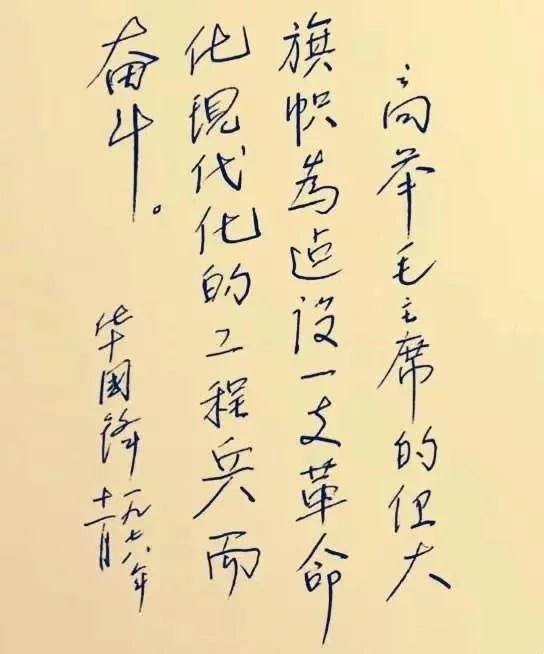 高举毛主席的伟大
旗帜為迠设一支革命
化現代化的工程兵而
奋斗。
华國锋 一九七八年
十一月